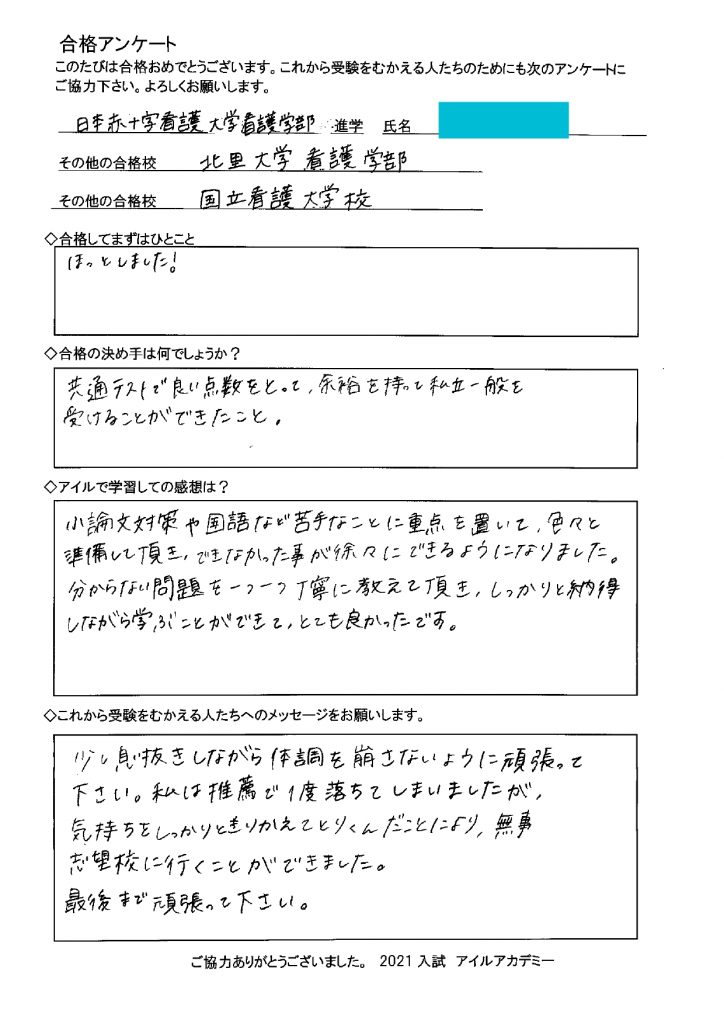 合格アンケート
このたびは合格おめでとうございます。これから受験をむかえる人たちのためにも次のアンケートに
ご協力下さい。よろしくお願いします。
日本赤十字看護大学看護学部 進学 氏名
その他の合格校 北里大学 看護学部
その他の合格校 国立看護大学校
◇合格してまずはひとこと
ほっとしました!
◇合格の決め手は何でしょうか?
共通テストで良い点数をとって、余裕を持って私立一般を
受けることができたこと。
◇アイルで学習しての感想は?
小論文対策や国語など苦手なことに重点を置いて、色々と
準備して頂き、できなかった事が徐々にできるようになりました。
分からない問題を一つ一つ丁寧に教えて頂き、しっかりと納得
しながら学ぶことができて、とても良かったです。
◇これから受験をむかえる人たちへのメッセージをお願いします。
少し息抜きしながら体調を崩さないように頑張って
下さい。私は推薦で1度落ちてしまいましたが、
気持ちをしっかりときりかえてとりくんだことにより、無事
志望校に行くことができました。
最後まで頑張って下さい。
ご協力ありがとうございました。 2021入試 アイルアカデミー